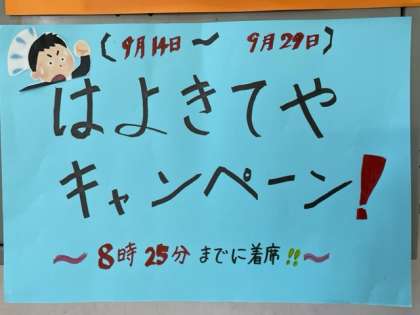 (9月14日〜 9月29日)
はよきてや
キャンペーン!
〜8時25分までに着席!!〜